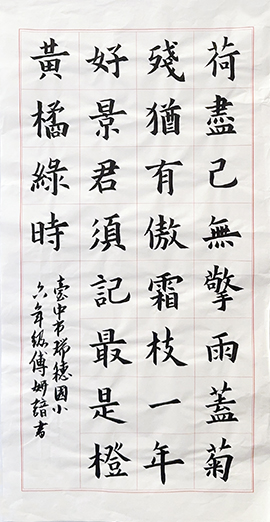 荷盡已無擎雨蓋菊
殘猶有傲霜枝一年
好景君須記最是橙
黃橘綠時
臺中市瑞德國小
六年級傅妍書